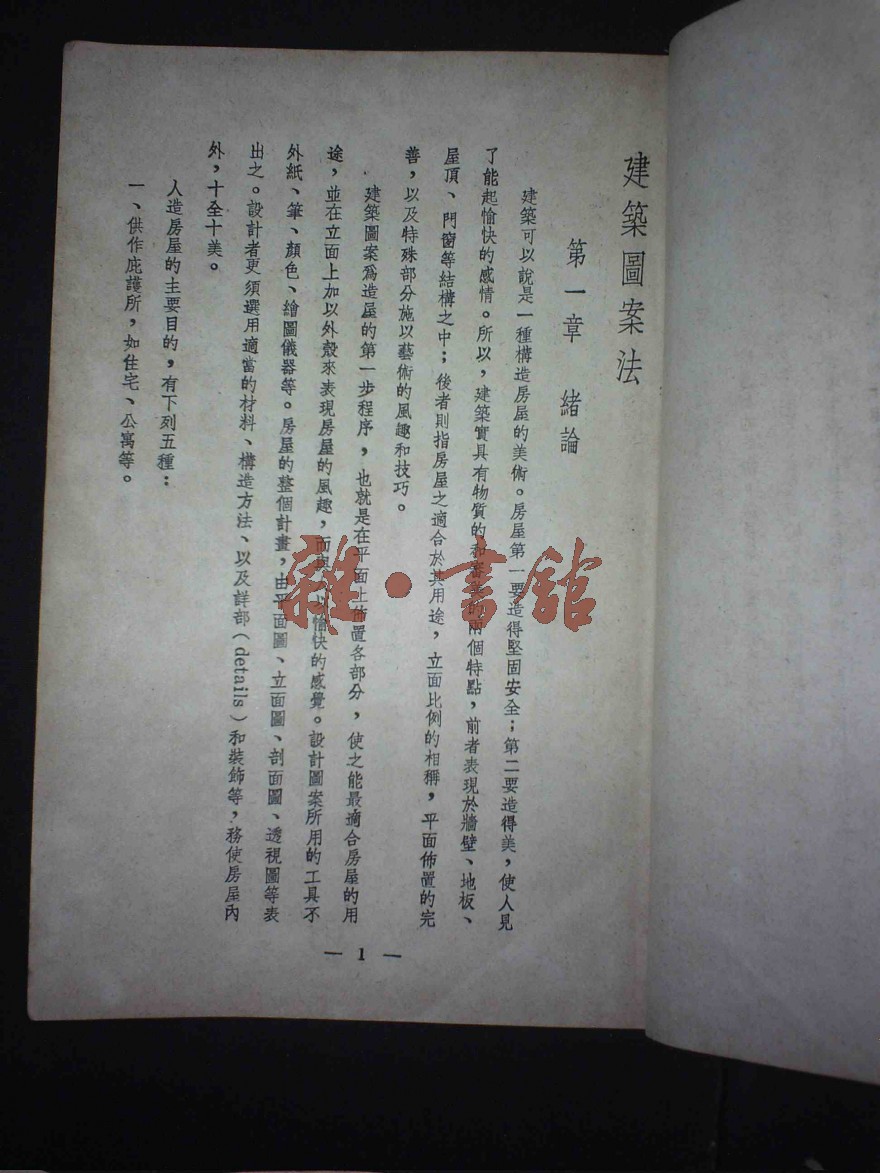 建築圖案法
第一章 緒論
建築可以說是一種構造房屋的美術。房屋第一要造得堅固安全；第二要造得美，使人見
了能起愉快的感情。所以，建築實具有物質的和審美的兩個特點，前者表現於牆壁、地板、
屋頂、門窗等結構之中；後者則指房屋之適合於其用途，立面比例的相稱，平面佈置的完
善，以及特殊部分施以藝術的風趣和技巧。
建築圖案爲造屋的第一步程序，也就是在平面上佈置各部分，使之能最適合房屋的用
途，並在立面上加以外殼來表現房屋的風趣，而與人以愉快的感覺。設計圖案所用的工具不
外紙、筆、顏色、繪圖儀器等。房屋的整個計畫，由平面圖、立面圖、剖面圖、透視圖等表
出之。設計者更須選用適當的材料、構造方法、以及詳部（details）和裝飾等，務使房屋內
外，十全十美。
人造房屋的主要目的，有下列五種：
一、供作庇護所，如住宅、公寓等。
— 1 —
雜·書館